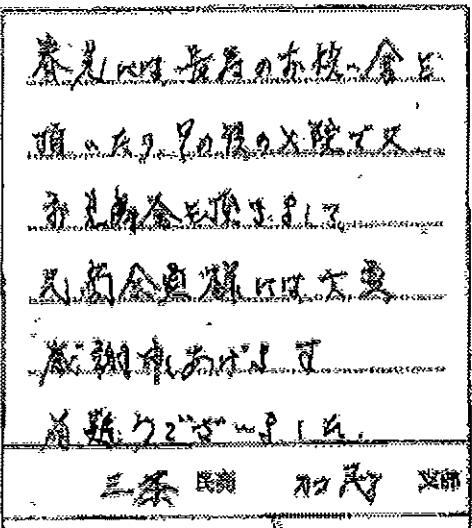 春見には長寿のお祝い金を
頂いたり、その後の入院で又
お見舞金を頂きまして
民商会員様には大変
感謝申しあげます
有難うございました。
三条 民商 加茂 支部